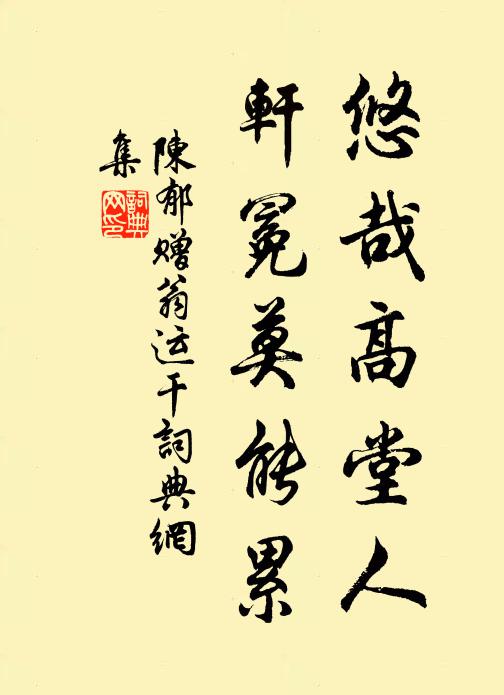 悠哉高堂人
軒冕莫能累
陳郁赠翁运干詞典網
集
詞典网印